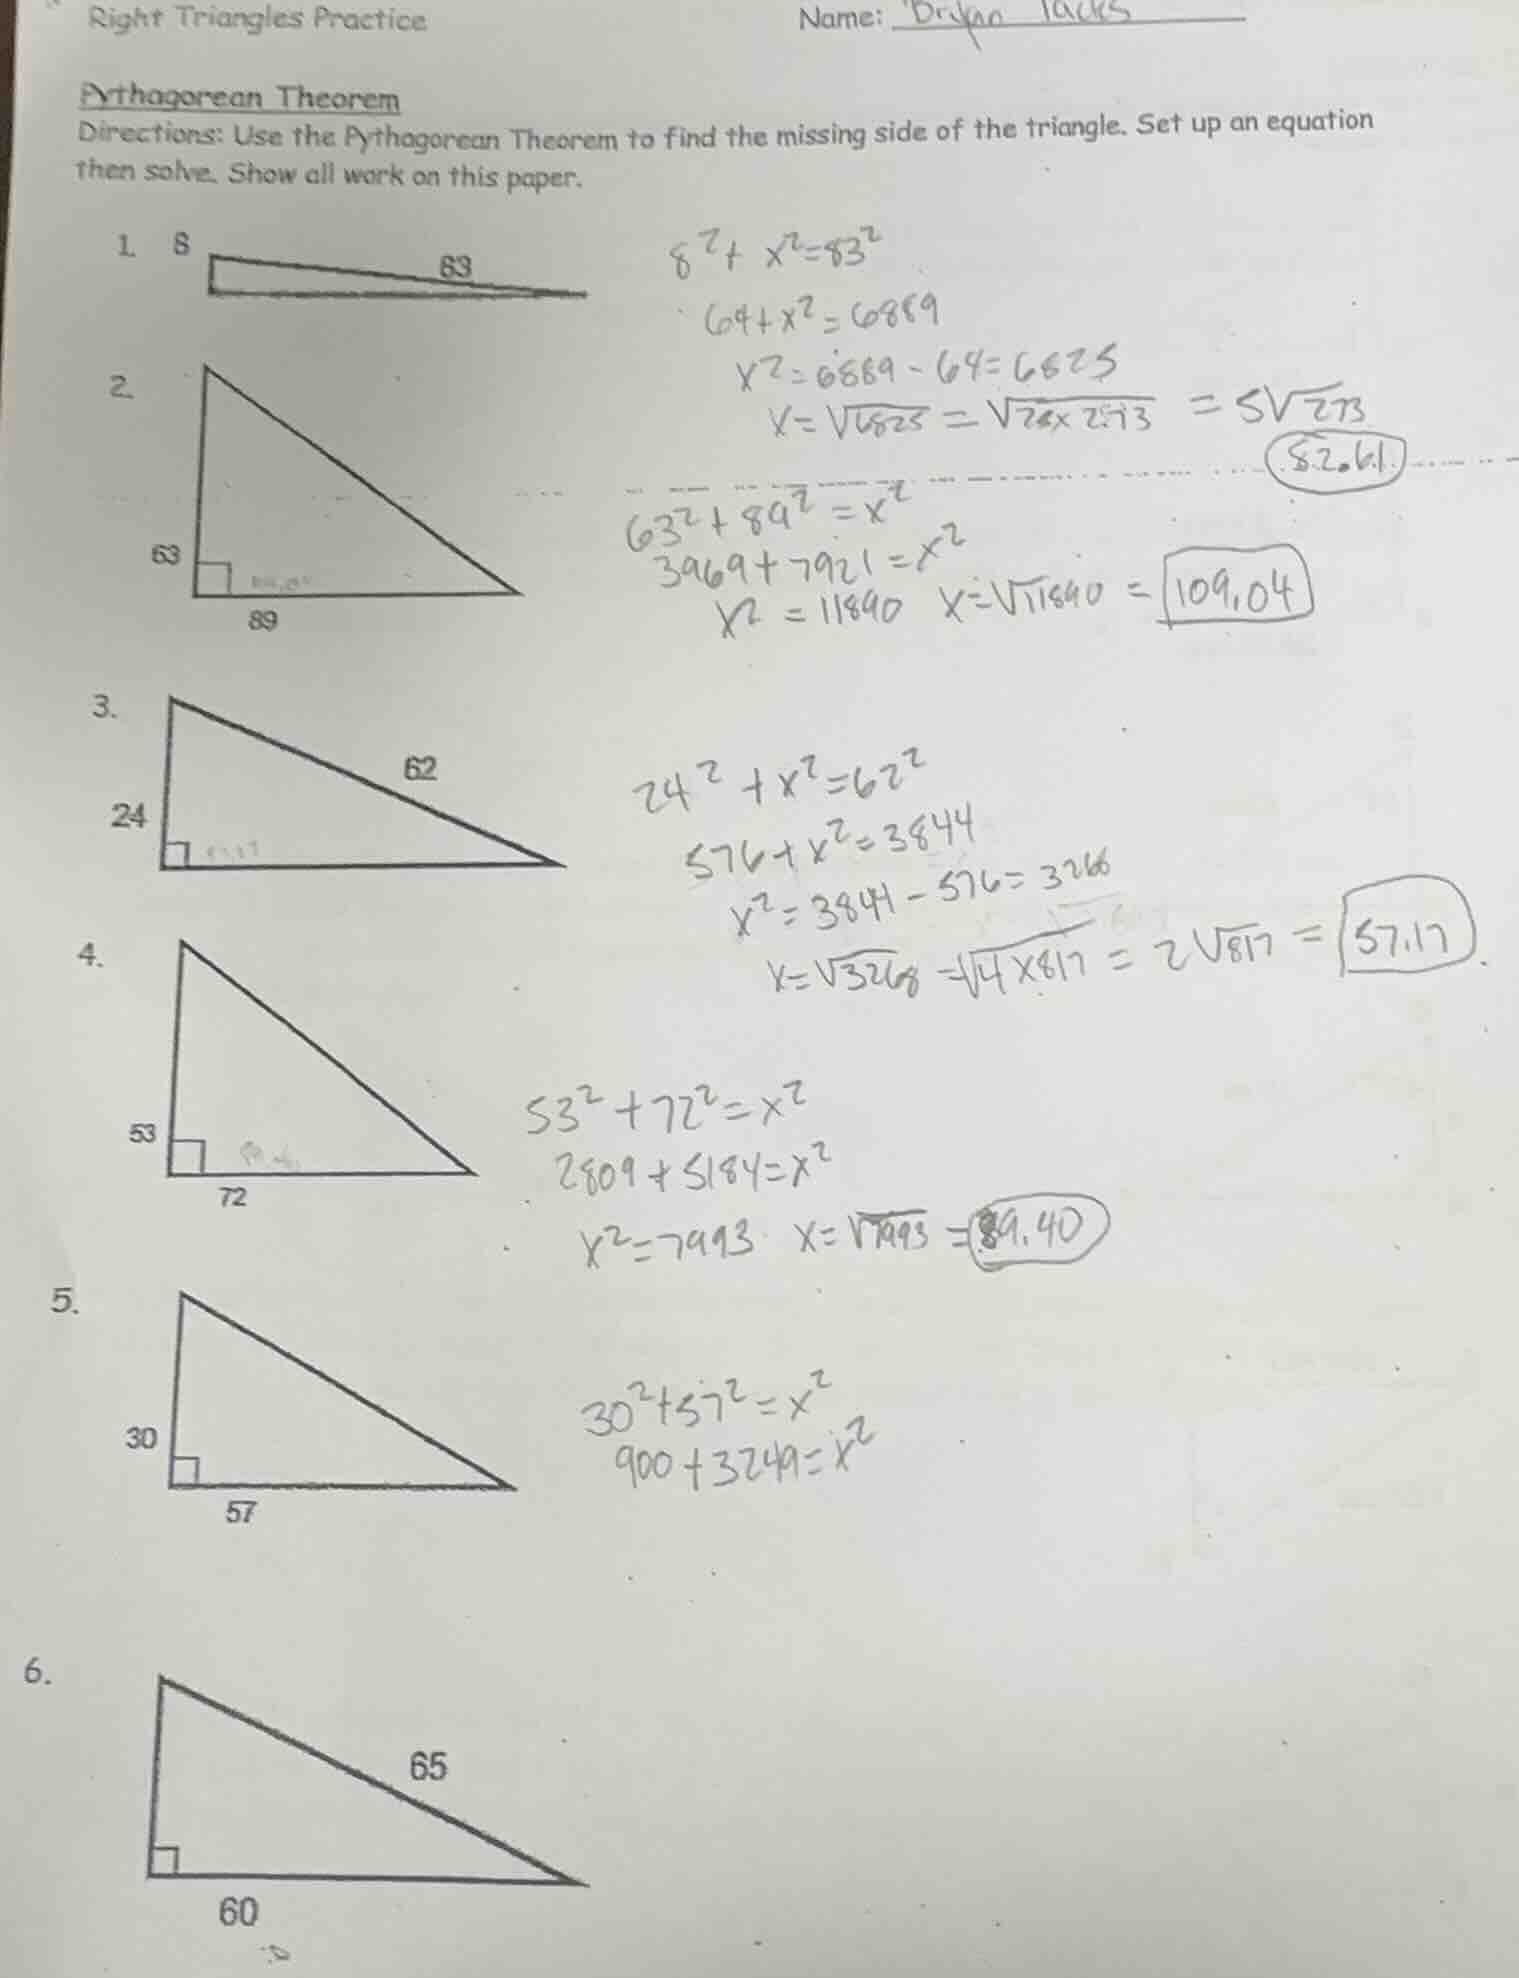 Right Triangles Practice Name:
Pythagorean Theorem
Directions: Use the Pythagorean Theorem to find the missing side of the triangle. Set up an equation
then solve. Show all work on this paper.
1. 8
83
8² + x² = 83²
64 + x² = 6889
x² = 6889 - 64 = 6825
x = √6825 = = 5√273
82.61
2.
63
89
63² + 89² = x²
3969 + 7921 = x²
x² = 11890 x = √11890 = 109.04
3.
62
24
24² + x² = 62²
576 + x² = 3844
x² = 3844 - 576 = 3268
x = √3268 = √4x817 = 2√817 = 57.17
4.
53
72
53² + 72² = x²
2809 + 5184 = x²
x² = 7993 x = √7993 = 89.40
5.
30
57
30² + 57² = x²
900 + 3249 = x²
6.
65
60